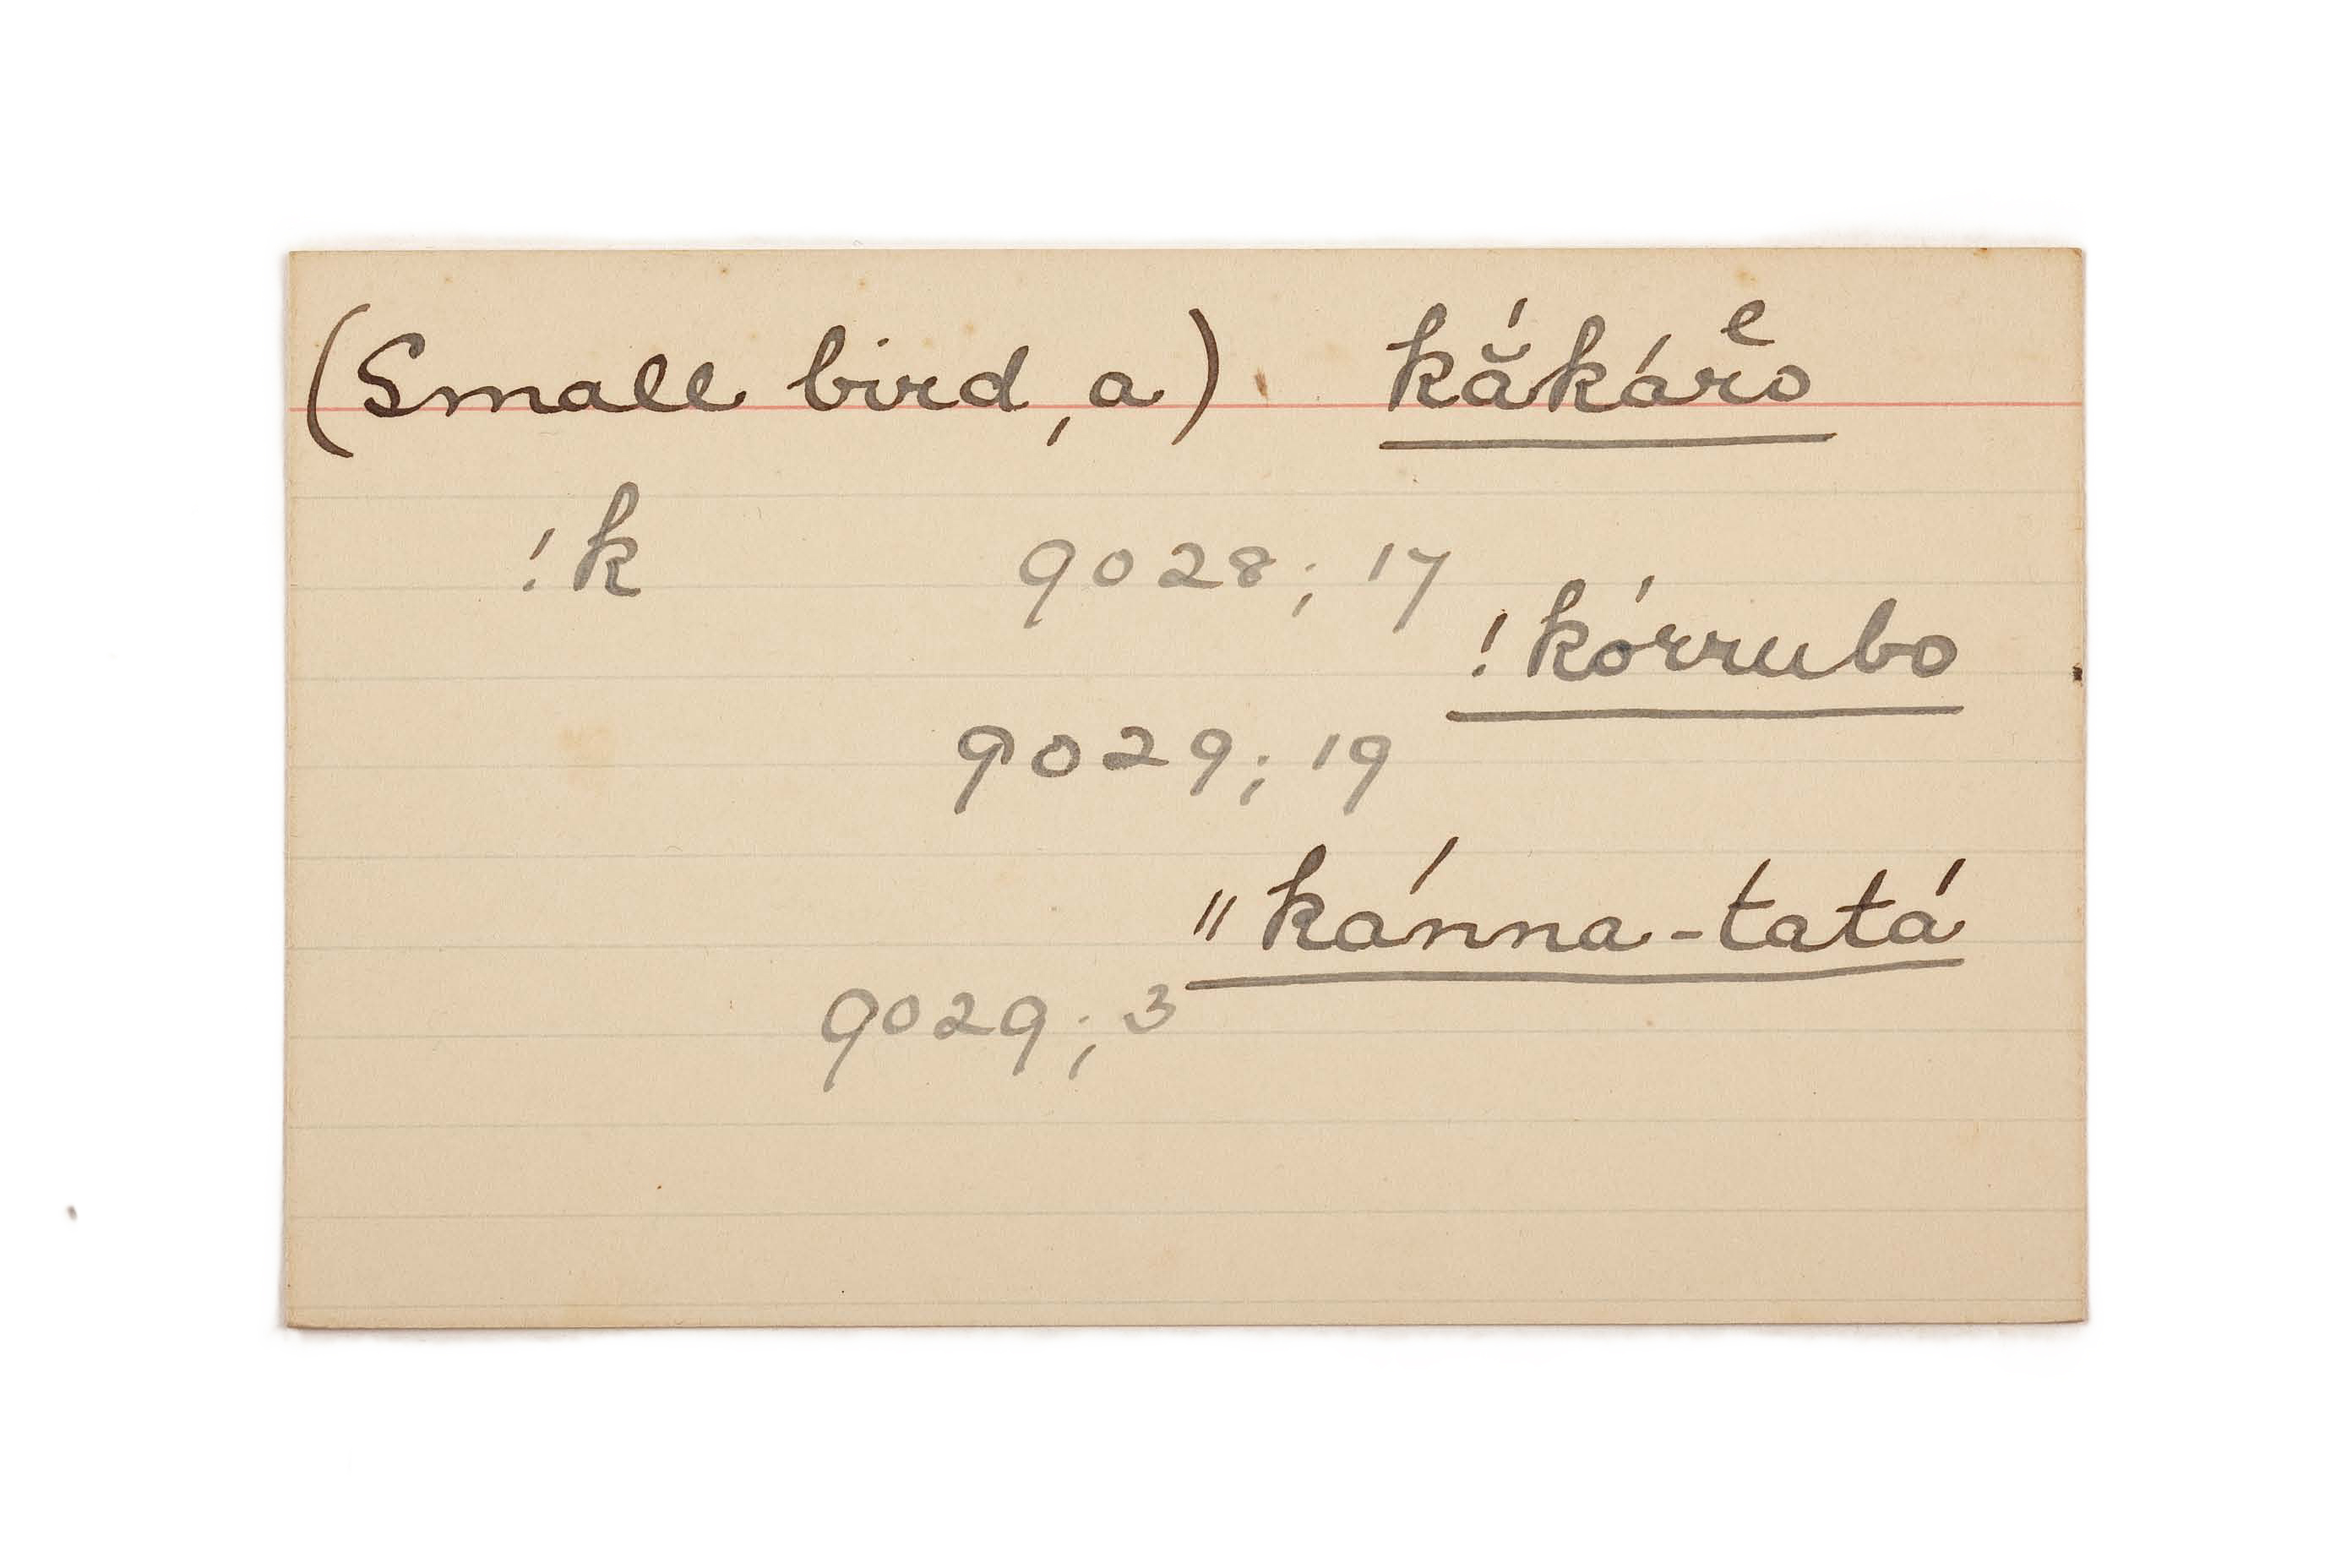 (Small bird, a) kắkárĕo
!k 9028; 17
!kórrubo
9029; 19
"kánna-tatá
9029; 3